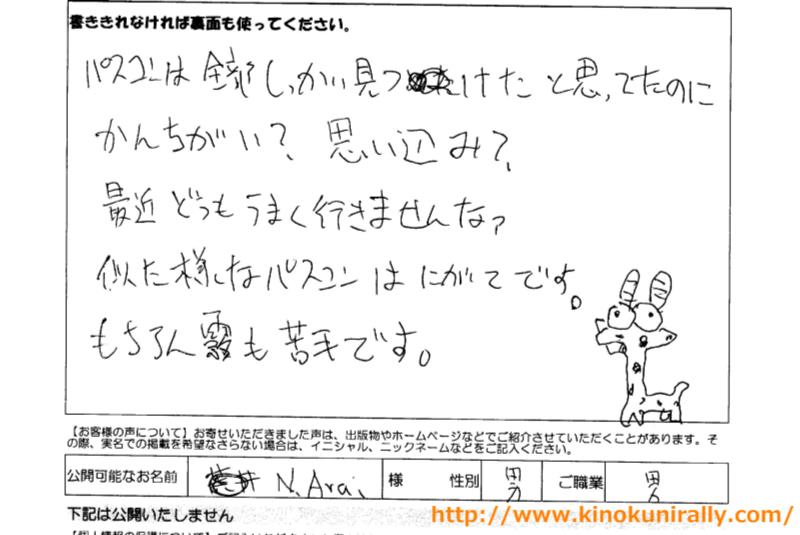 書ききれなければ裏面も使ってください。
パスコンは全部しっかり見つけたと思ってたのに
かんちがい？思い込み？
最近どうもうまく行きませんなァ
似た様なパスコンはにがてです。
もちろん霧も苦手です。
【お客様の声について】お寄せいただきました声は、出版物やホームページなどでご紹介させていただくことがあります。そ
の際、実名での掲載を希望なさらない場合は、イニシャル、ニックネームなどをご記入ください。
公開可能なお名前 N.Arai 様 性別 男 ご職業 男
下記は公開いたしません
http://www.kinokunirally.com/